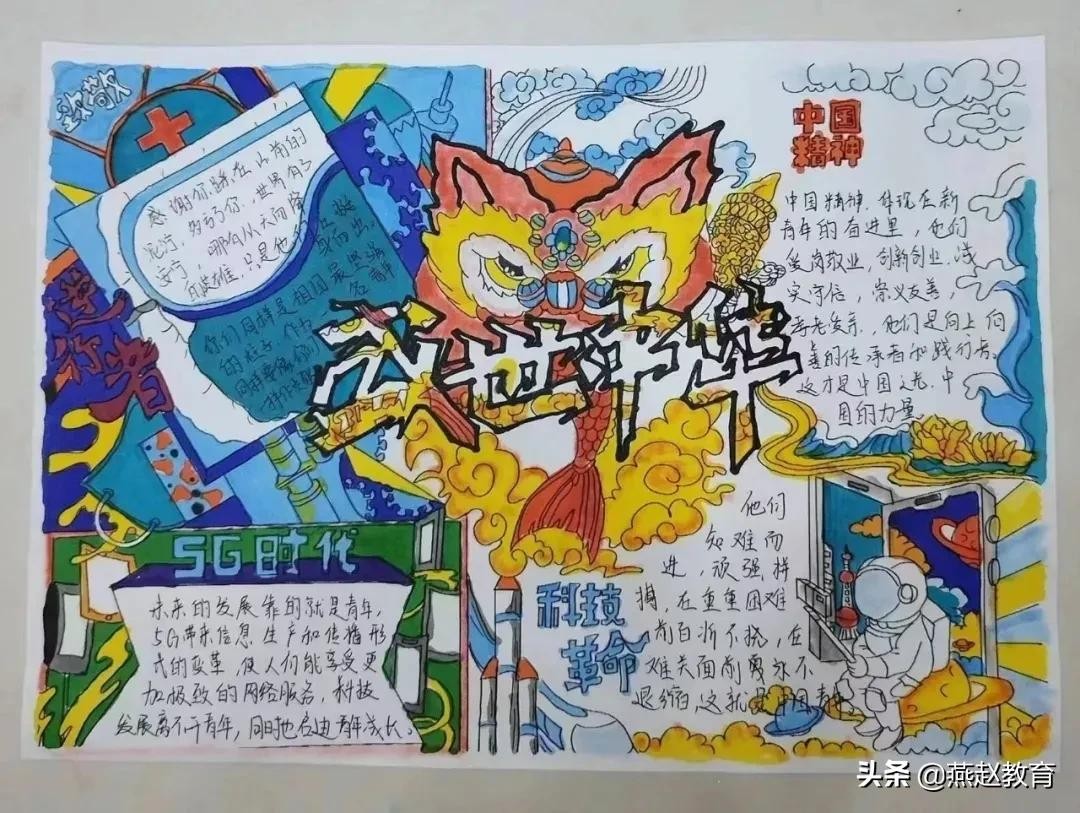 致敬
逆行者
感谢你踏在以前的
泥泞，
安宁，
你们同样是祖国最坚强
的柱子，作为
武世青年
中国
精神
中国精神，体现在新
青年的奋进里，他们
爱岗敬业，创新创业，诚
实守信，崇义友善，
孝老爱亲，他们是向上向
善的传承者和践行者。
这才是中国之光，中
国的力量
5G时代
未来的发展靠的就是青年，
5G带来信息生产和传播形
式的变革，使人们能享受更
加极致的网络服务，科技
发展离不开青年，同时也启迪青年成长。
科技
革命
他们
知难而
进，顽强拼
搏，在重重困难
前百折不挠，在
难关面前勇永不
退缩，这就是中国青年
头条 @燕赵教育